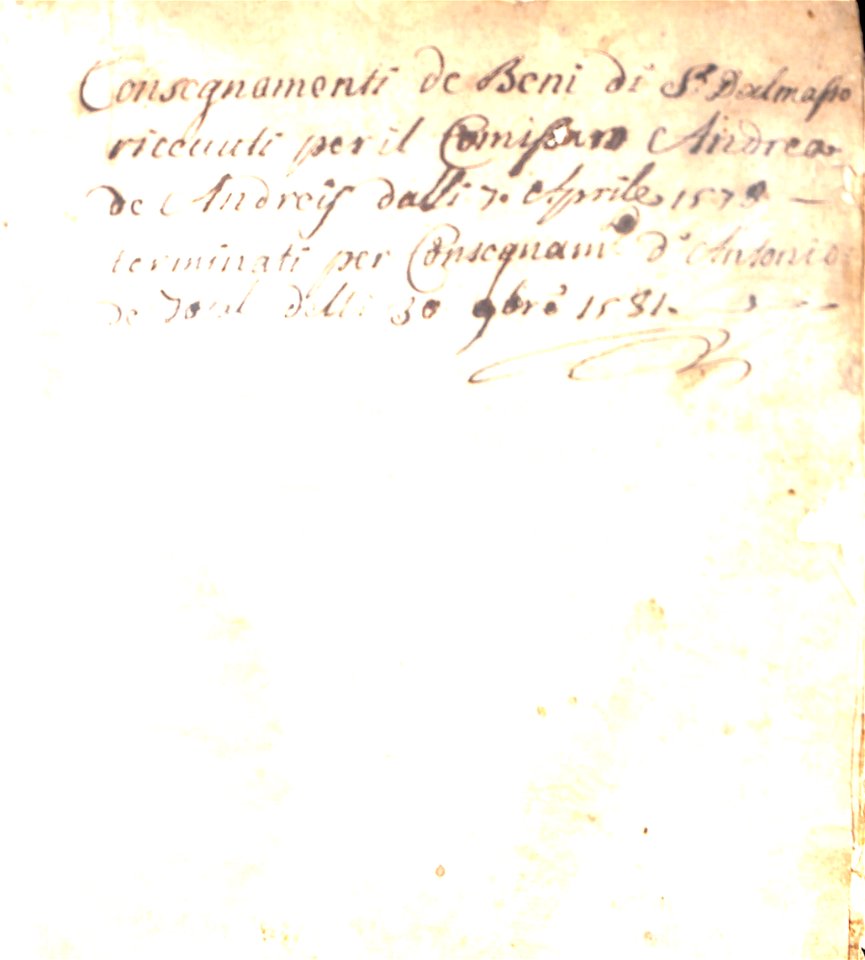 Consegnamenti de Beni di S.r Dalmasso
riceuuti per il Comissaro Andrea
de Andreis dalli 7. Aprile 1578 —
terminati per Consegnam.to d'Antonio
de dalli 30 9bre 1581.